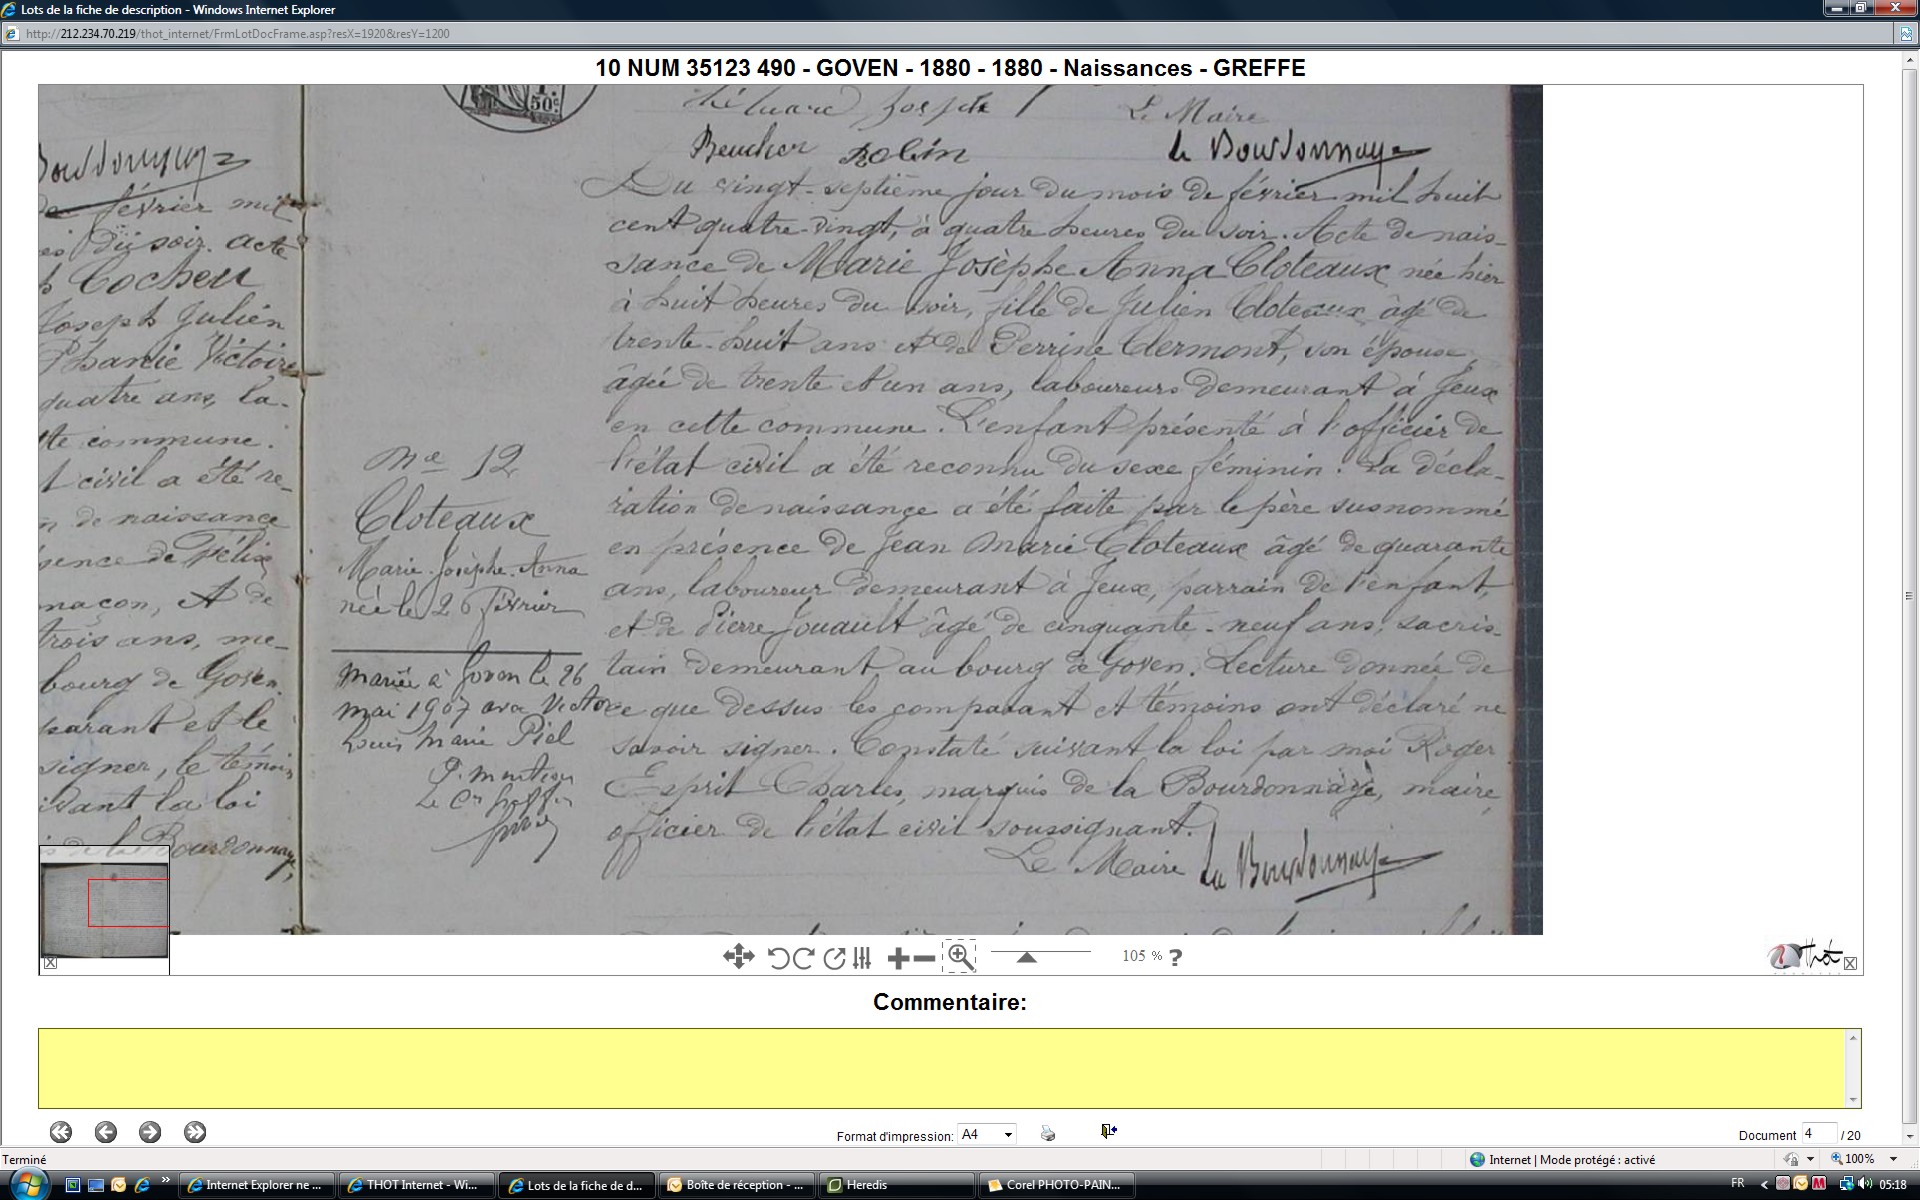 Lots de la fiche de description - Windows Internet Explorer
http://212.234.70.219/thot_internet/FrmLotDocFrame.asp?resX=1920&resY=1200
10 NUM 35123 490 - GOVEN - 1880 - 1880 - Naissances - GREFFE
50c
Joseph
Le Maire
Beucher Robin
de Bourdonnaye
Bourdonnaye
de février mil
du soir. Acte
Cocheu
Joseph Julien
Victoire
quatre ans, la-
commune.
civil a été re-
de naissance
de Félix
maçon, et de
trois ans, me-
bourg de Goven.
et le
signer, le témoin
la loi
de la Bourdonnaye,
Nº 12
Cloteaux
Marie-Josèphe-Anna
née le 26 février
Mariée à Goven le 26
mai 1907 avec Victor
Louis Marie Piel
P. mention
Le
Du vingt-septième jour du mois de février mil huit
cent quatre-vingt, à quatre heures du soir. Acte de nais-
sance de Marie Josèphe Anna Cloteaux née hier
à huit heures du soir, fille de Julien Cloteaux âgé de
trente-huit ans et de Perrine Clermont, son épouse,
âgée de trente et un ans, laboureurs demeurant à Jeux
en cette commune. L'enfant présenté à l'officier de
l'état civil a été reconnu du sexe féminin. La décla-
ration de naissance a été faite par le père susnommé
en présence de Jean Marie Cloteaux âgé de quarante
ans, laboureur demeurant à Jeux, parrain de l'enfant,
et de Pierre Jouault âgé de cinquante-neuf ans, sacris-
tain demeurant au bourg de Goven. Lecture donnée de
ce que dessus les comparant et témoins ont déclaré ne
savoir signer. Constaté suivant la loi par moi Roger
Esprit Charles, marquis de la Bourdonnaye, maire
officier de l'état civil soussignant.
Le Maire
de Bourdonnaye
105 % ?
Thot
Commentaire:
Format d'impression: A4
Document 4 / 20
Terminé
Internet | Mode protégé : activé
100%
Internet Explorer ne ...
THOT Internet - Wi...
Lots de la fiche de d...
Boîte de réception - ...
Heredis
Corel PHOTO-PAIN...
FR
05:18